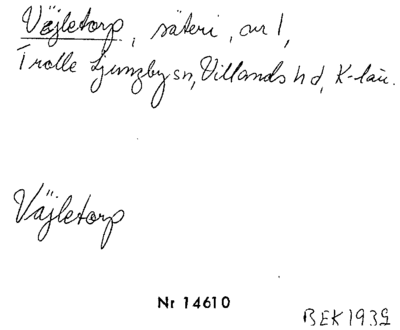 Väjletorp, säteri, nr 1,
Trolle Ljungby sn, Villands hd, K-län.
Väjletorp
Nr 14610
BEK 1939